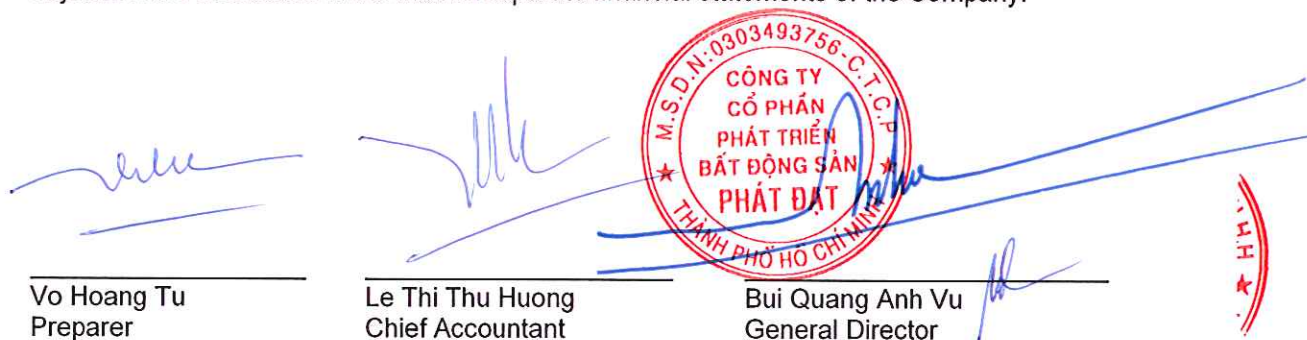 statements of the Company.
M.S.D.N:0303493756-C.T.C.P
CÔNG TY
CỔ PHẦN
PHÁT TRIỂN
BẤT ĐỘNG SẢN
PHÁT ĐẠT
THÀNH PHỐ HỒ CHÍ MINH
Vo Hoang Tu
Preparer
Le Thi Thu Huong
Chief Accountant
Bui Quang Anh Vu
General Director